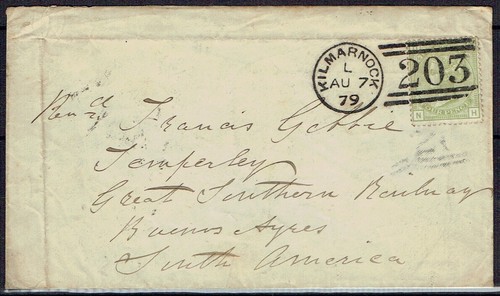 KILMARNOCK
L
AU 7
79
203
N H
Revd Francis Gebbie
Temperley
Great Southern Railway
Buenos Ayres
South America